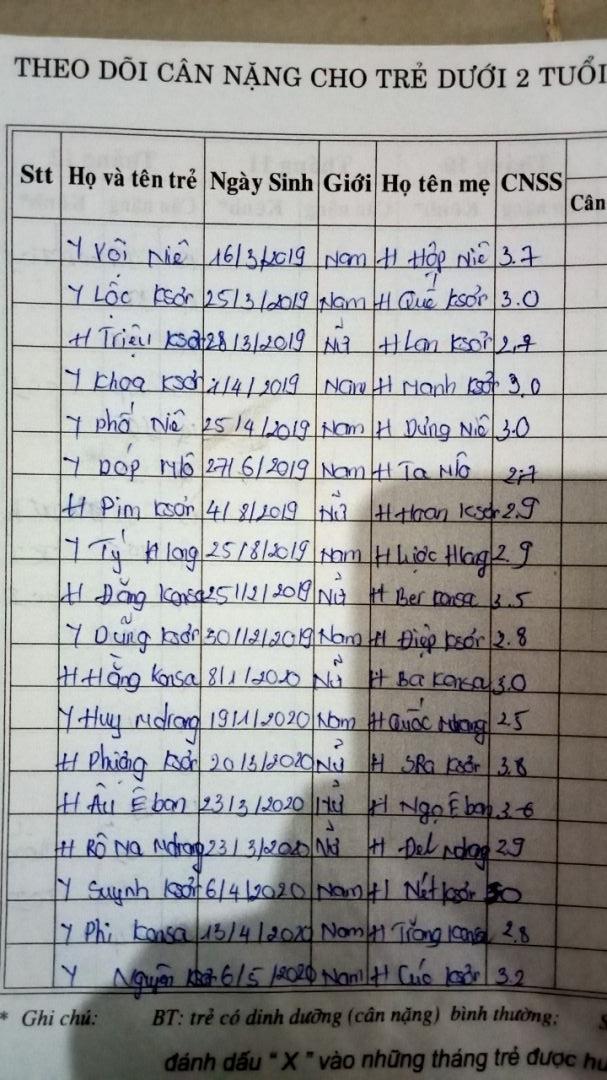 THEO DÕI CÂN NẶNG CHO TRẺ DƯỚI 2 TUỔI
Stt Họ và tên trẻ Ngày Sinh Giới Họ tên mẹ CNSS Cân
Y Vôi Niê 16/3/2019 Nam H Hộp Niê 3.7
Y Lộc Ksơr 25/3/2019 Nam H Quế Ksơr 3.0
H Triệu Ksơr 28/3/2019 Nữ H Lan Ksơr 2,7
Y Khoa Ksơr /4/2019 Nam H Mạnh Ksơr 3.0
Y Phố Niê 25/4/2019 Nam H Dưng Niê 3.0
Y Dóp Mlô 27/6/2019 Nam H Ta Mlô 2,7
H Pim Ksơr 4/8/2019 Nữ H Hoan Ksơr 2.9
Y Tý Hlong 25/8/2019 Nam H Lược Hlong 2.9
H Đăng Konsa 25/12/2019 Nữ H Ber Konsa 3.5
Y Dũng Ksơr 30/12/2019 Nam H Điệp Ksơr 2.8
H Hằng Konsa 8/1/2020 Nữ H Ba Konsa 3.0
Y Huy Ndrang 19/1/2020 Nam H Quốc Ndrang 25
H Phương Ksơr 20/3/2020 Nữ H SRa Ksơr 3.8
H Âu Êban 23/3/2020 Nữ H Ngọ Êban 3-6
H Rô Na Ndrang 23/3/2020 Nữ H Del Ndrang 29
Y Suynh Ksơr 6/4/2020 Nam H Nét Ksơr
Y Phi Konsa 13/4/2020 Nam H Trăng Konsa 2.8
Y Nguyên Ksơr 6/5/2020 Nam H Cúc Ksơr 3.2
* Ghi chú: BT: trẻ có dinh dưỡng (cân nặng) bình thường;
đánh dấu “ X ” vào những tháng trẻ được